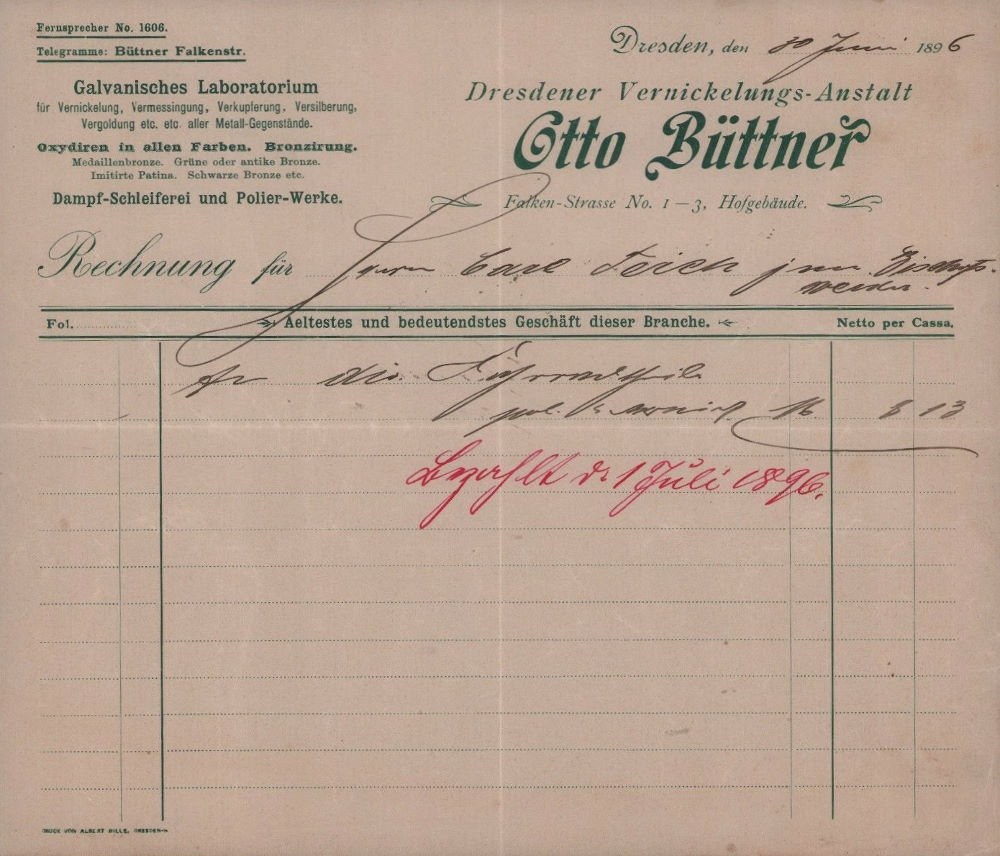 Fernsprecher No. 1606.
Telegramme: Büttner Falkenstr.
Galvanisches Laboratorium
für Vernickelung, Vermessingung, Verkupferung, Versilberung,
Vergoldung etc. etc. aller Metall-Gegenstände.
Oxydiren in allen Farben. Bronzirung.
Medaillenbronze. Grüne oder antike Bronze.
Imitirte Patina. Schwarze Bronze etc.
Dampf-Schleiferei und Polier-Werke.
Dresden, den 30 Juni 1896
Dresdener Vernickelungs-Anstalt
Otto Büttner
Falken-Strasse No. 1–3, Hofgebäude.
Rechnung für Herrn Carl Teich jun Bischofs-
werda.
Fol. Aeltestes und bedeutendstes Geschäft dieser Branche. Netto per Cassa.
die
M 8 13
Bezahlt d. 1 Juli 1896.
DRUCK VON ALBERT HILLE, DRESDEN-N.